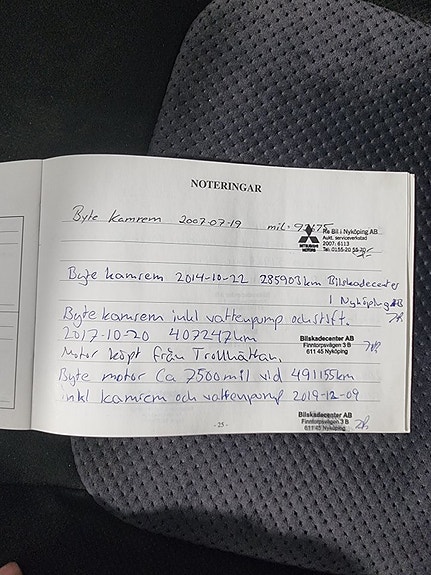 NOTERINGAR
Byte kamrem 2007-07-19 mil:
Re Bil i Nyköping AB
Aukt. serviceverkstad
2007: 6113
Tel. 0155-20 55
MITSUBISHI
MOTORS
Byte kamrem 2014-10-22 285903km Bilskadecenter
i Nyköping AB
Byte kamrem inkl vattenpump och stift.
2017-10-20 407247km
Bilskadecenter AB
Finntorpsvägen 3 B
611 45 Nyköping
Motor köpt från Trollhättan.
Byte motor Ca 7500mil vid 491155km
inkl kamrem och vattenpump 2019-12-09
Bilskadecenter AB
Finntorpsvägen 3 B
611 45 Nyköping
- 25 -